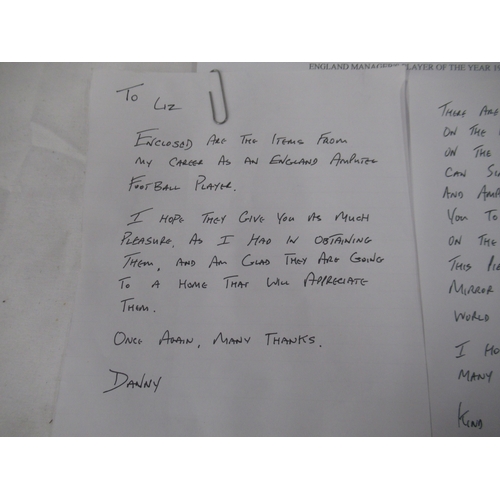 ENGLAND MANAGER'S PLAYER OF THE YEAR
To Liz
Enclosed Are The Items From
My Career As An England Amputee
Football Player.
I Hope They Give You As Much
Pleasure, As I Had In Obtaining
Them, And Am Glad They Are Going
To A Home That Will Appreciate
Them.
Once Again, Many Thanks.
Danny
There Are
On The
On The
Can
And
You To
On The
This
Mirror
World
I
Many
Kind